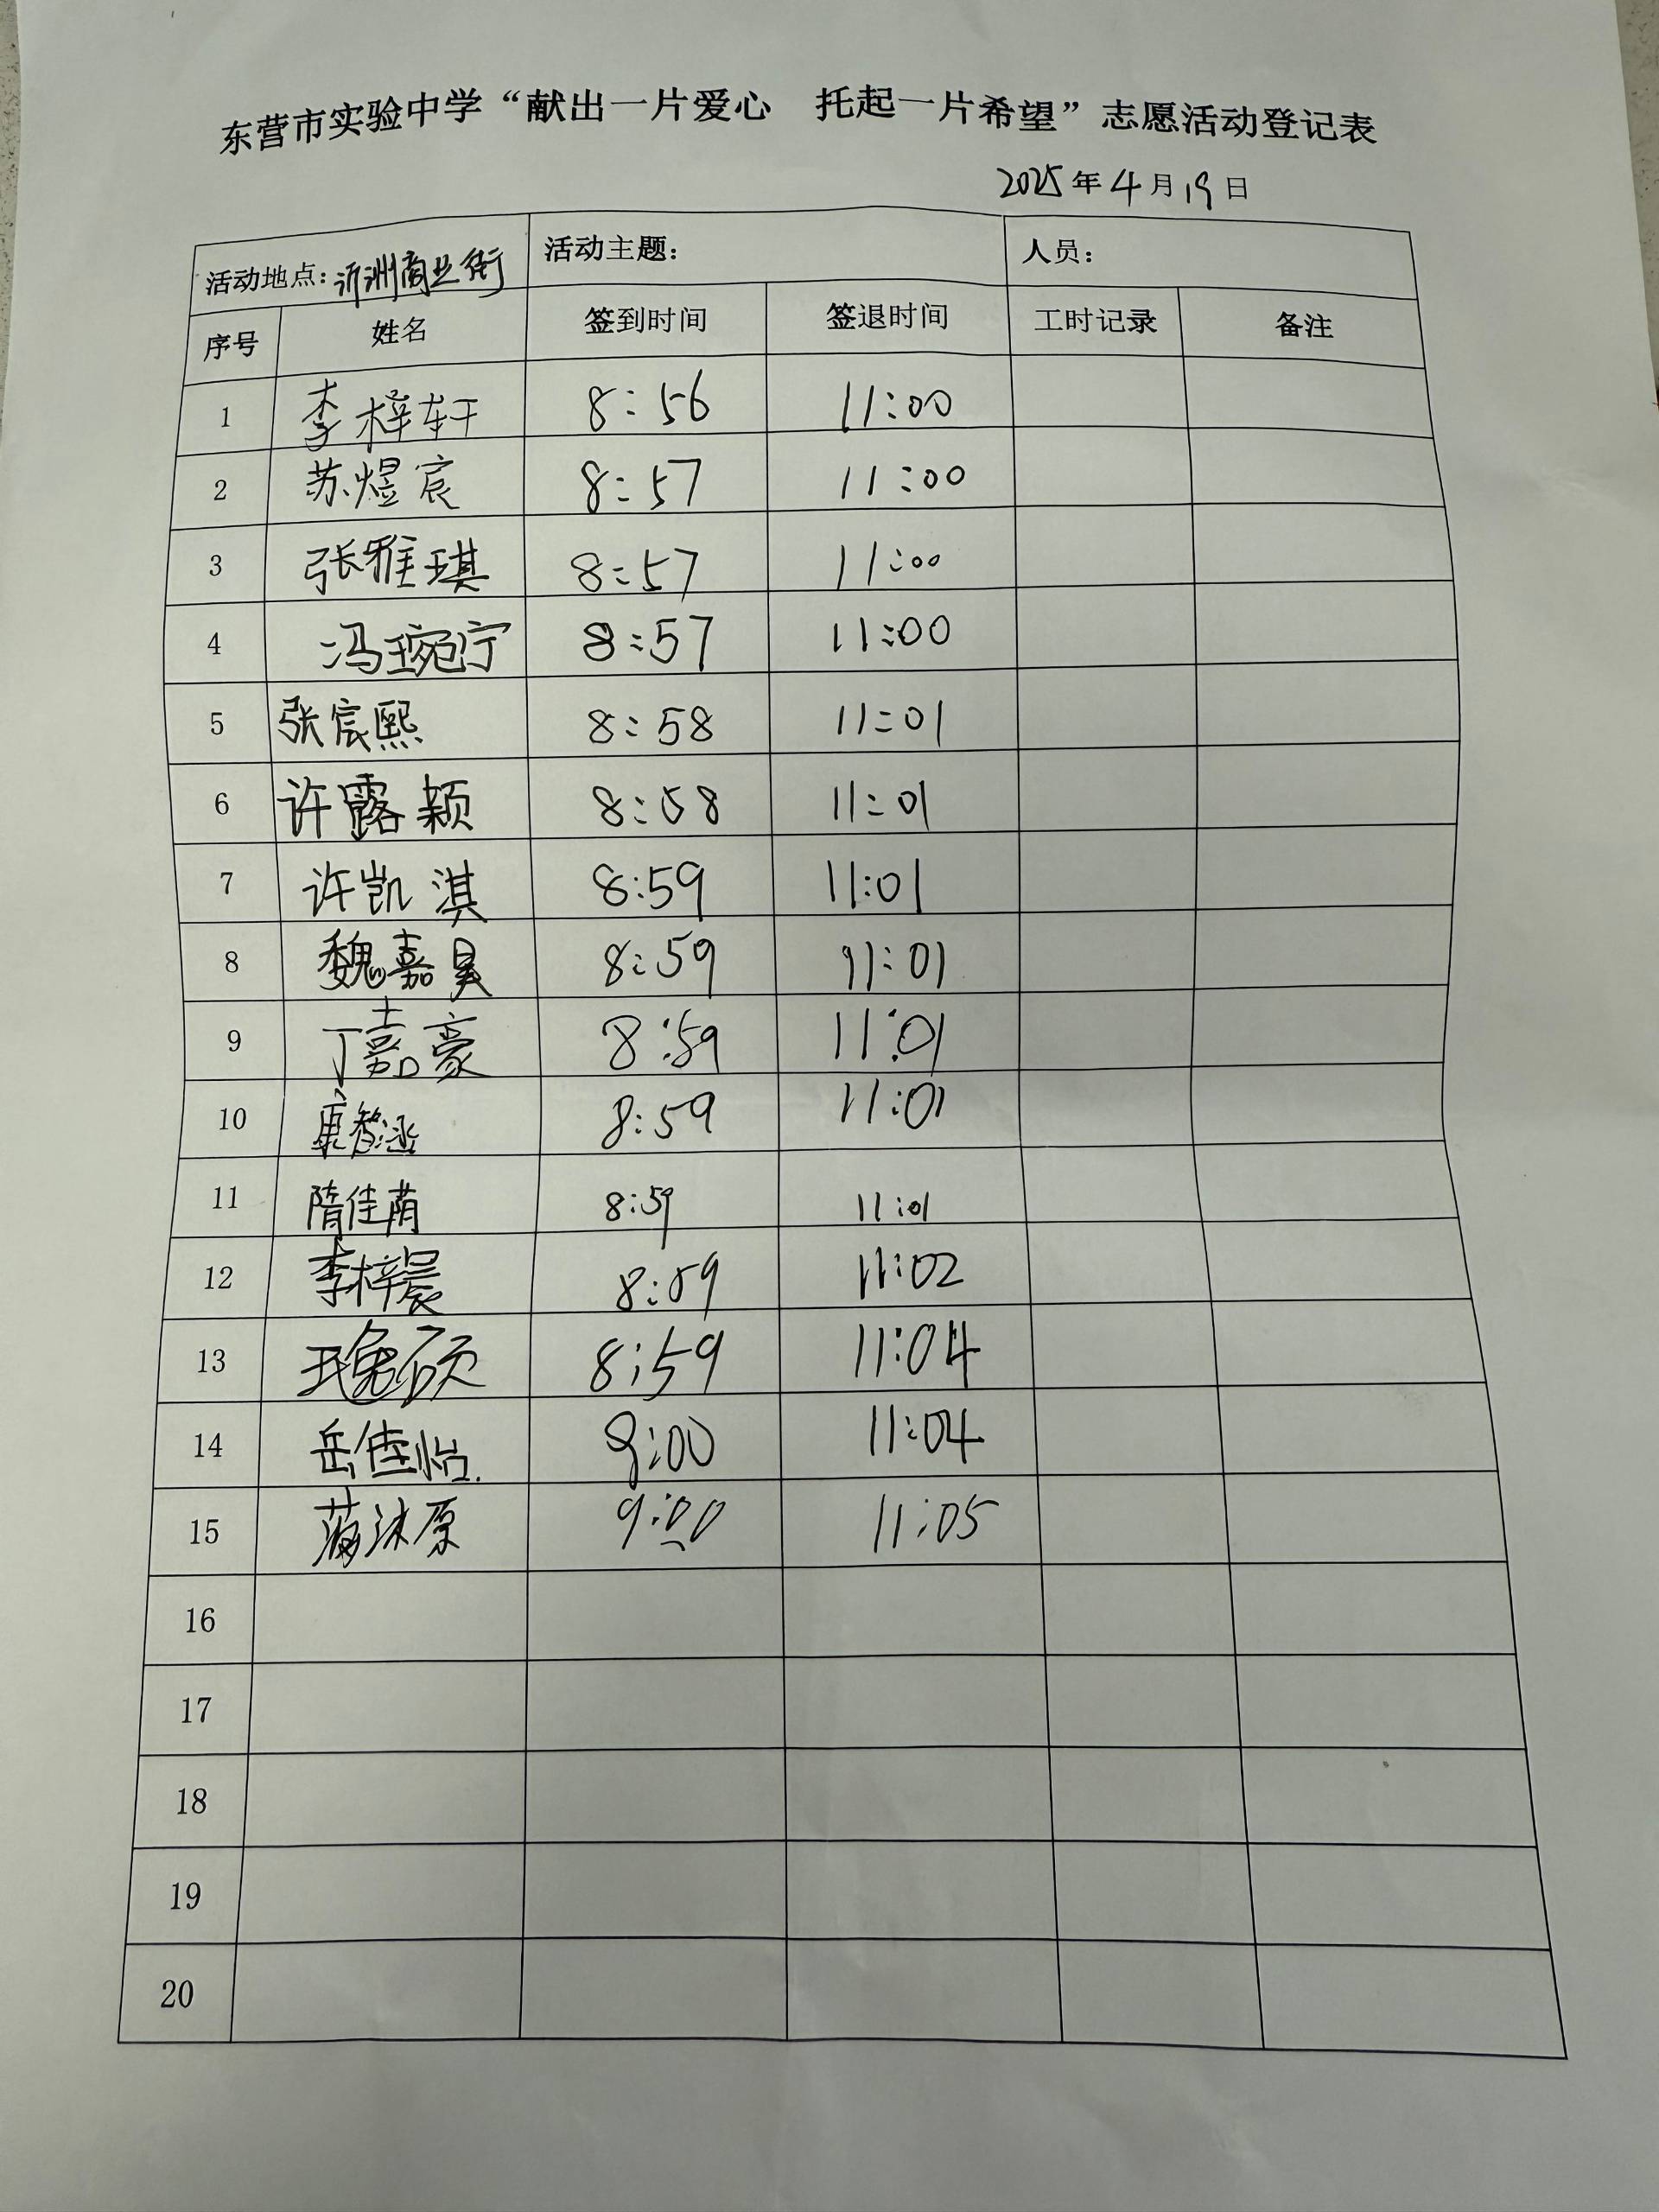 东营市实验中学“献出一片爱心 托起一片希望”志愿活动登记表
2025年4月19日
活动地点：沂洲商业街 活动主题： 人员：
序号 姓名 签到时间 签退时间 工时记录 备注
1 李梓轩 8:56 11:00
2 苏煜宸 8:57 11:00
3 张雅琪 8:57 11:00
4 冯琬宁 8:57 11:00
5 张宸熙 8:58 11:01
6 许露颖 8:58 11:01
7 许凯淇 8:59 11:01
8 魏嘉昊 8:59 11:01
9 丁嘉豪 8:59 11:01
10 8:59 11:01
11 隋佳荫 8:59 11:01
12 李梓晨 8:59 11:02
13 8:59 11:04
14 岳佳怡 9:00 11:04
15 沐原 9:00 11:05
16
17
18
19
20